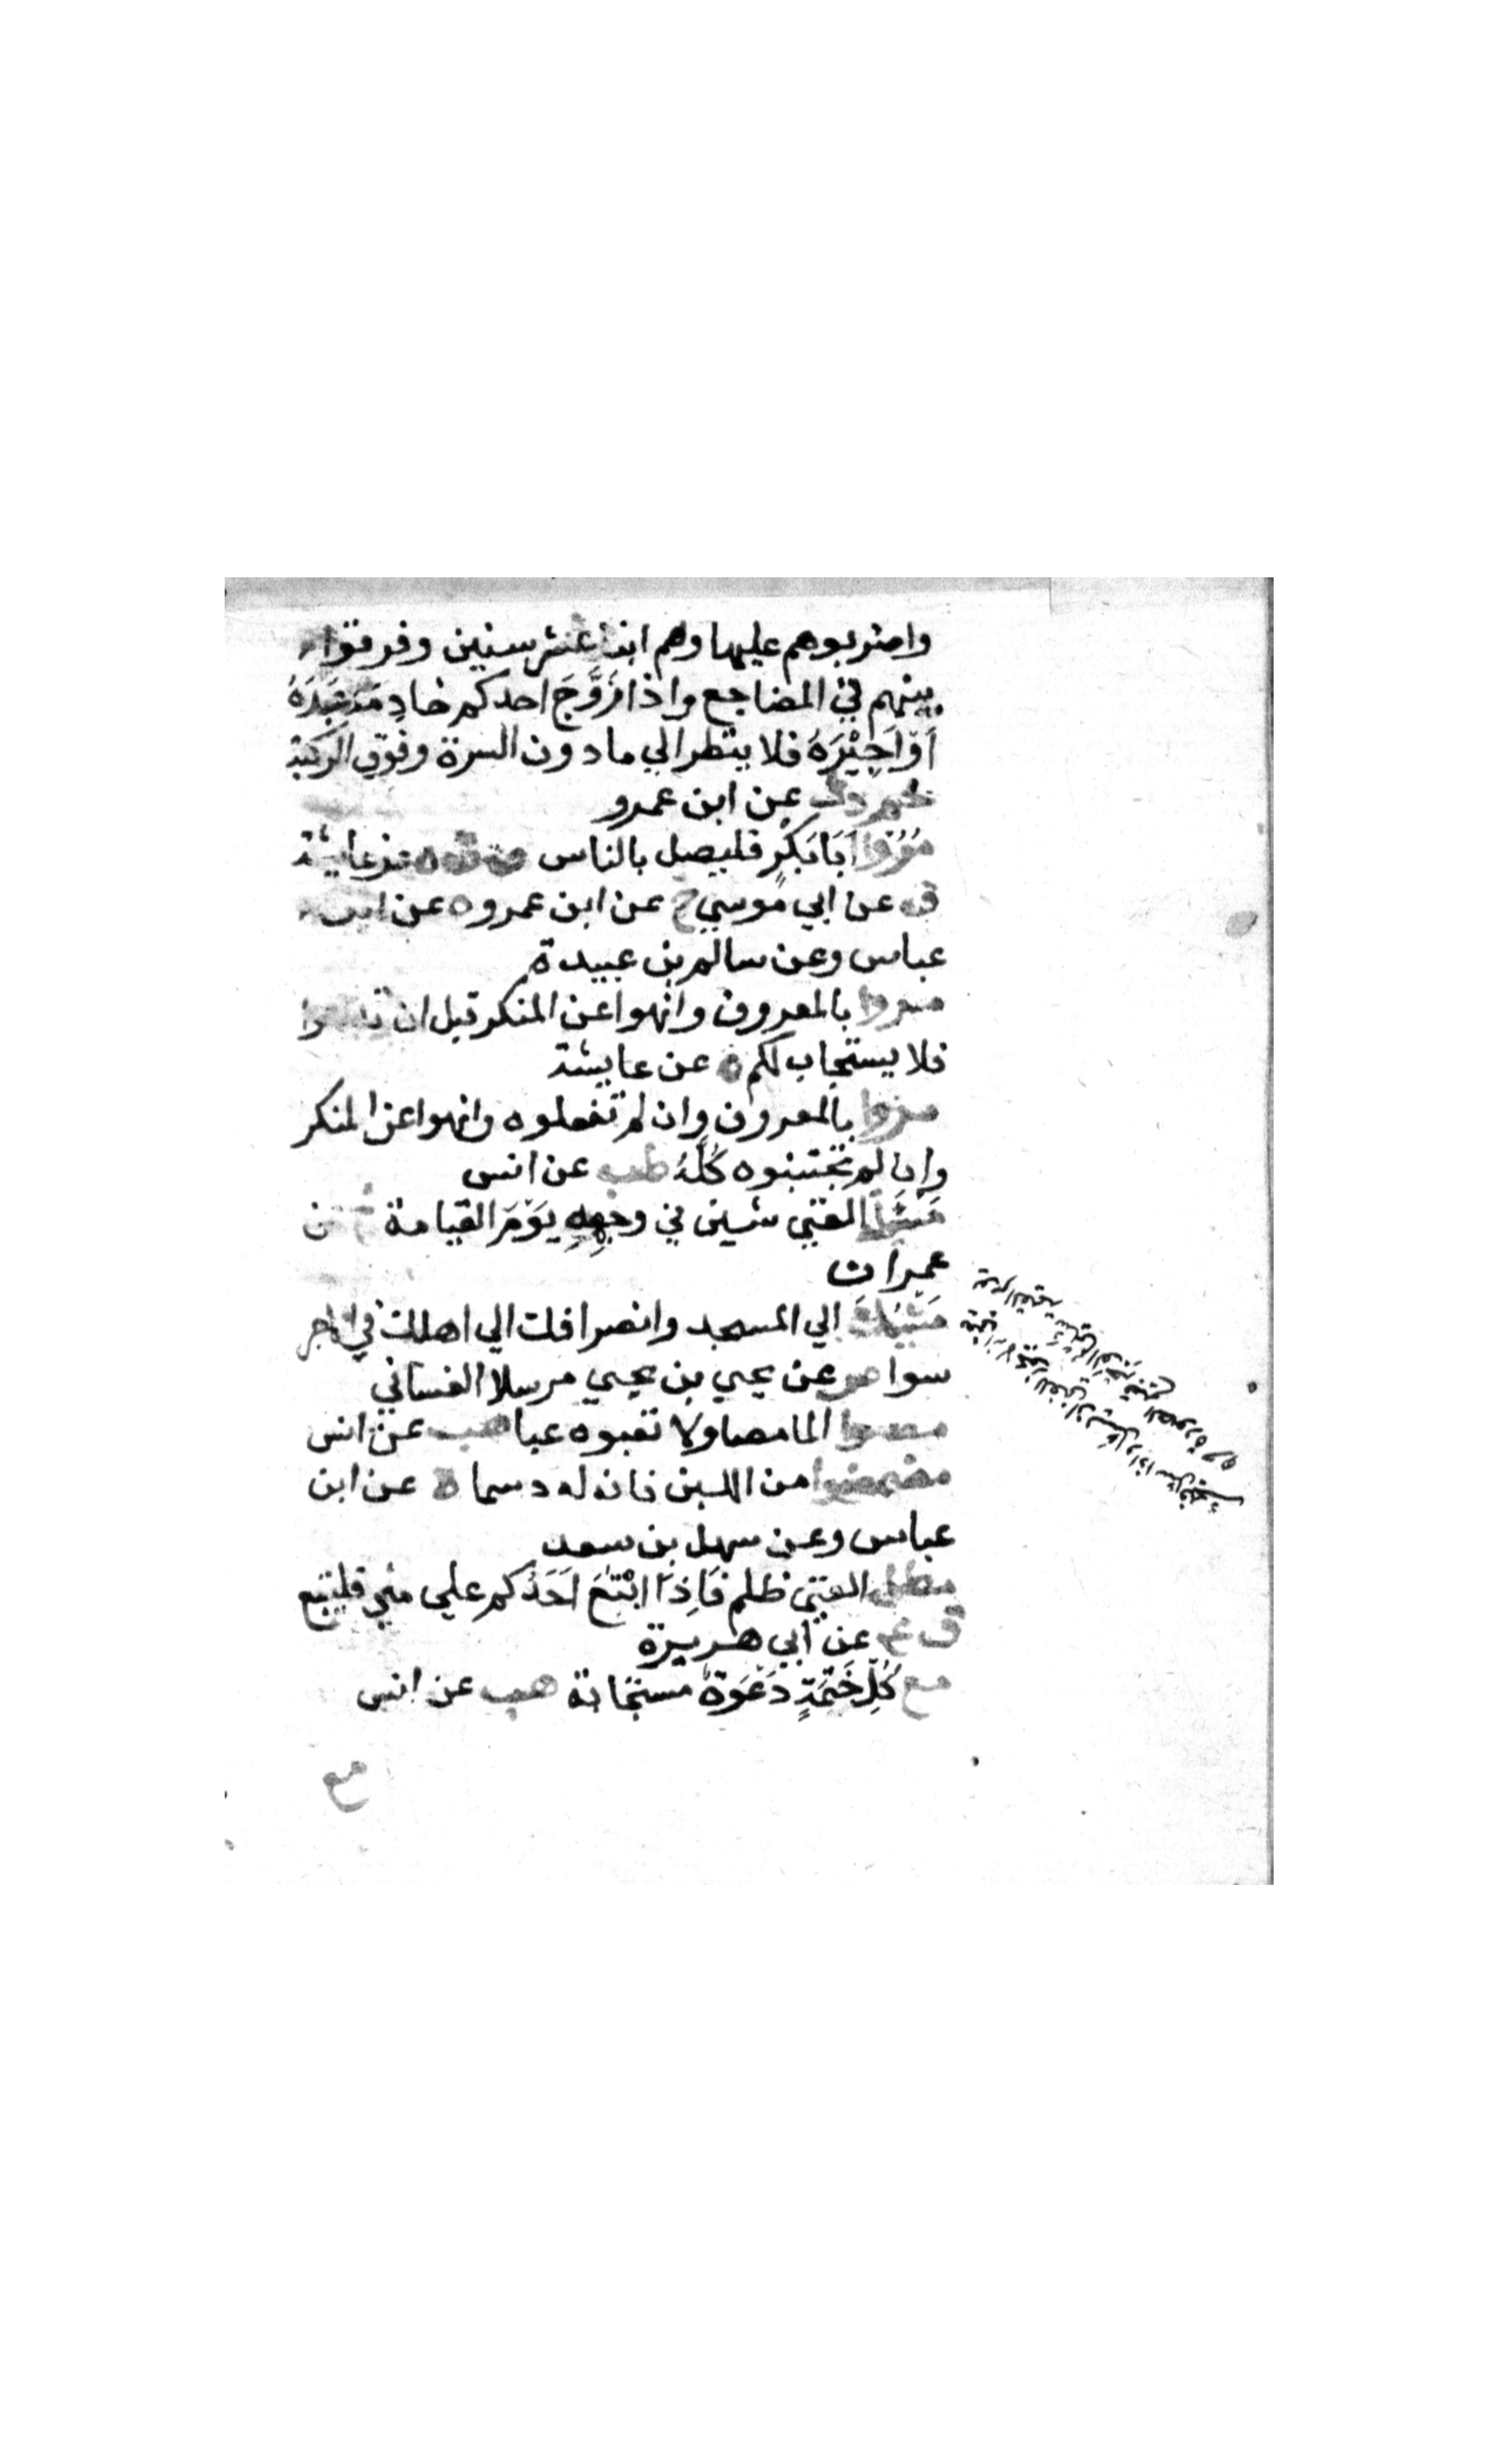 واضربوهم عليها وهم ابنا عشر سنين وفرقوا
بينهم في المضاجع واذا زَوَّجَ احدكم خادِمَهُ عَبْدَهُ
أَوْ اَجِيْرَهُ فلا ينظر الي ما دون السرة وفوق الركبة
حم د ك عن ابن عمرو
مُرُوا اَبَا بَكْرٍ فليصل بالناس ق ت ه عن عايشة
ق عن ابي موسي خ عن ابن عمر و ه عن ابن
عباس وعن سالم بن عبيدة
مروا بالمعروف وانهوا عن المنكر قبل ان تدعوا
فلا يستجاب لكم ه عن عايشة
مروا بالمعروف وان لم تفعلوه وانهوا عن المنكر
وان لم تجتنبوه كُلَّهُ طب عن انس
مَسْئَلَة الغني شين في وجهِهِ يَوْمَ القيامة عن
عمران
مَشْيُكَ الي المسجد وانصرافك الي اهلك في الاجر
سوا ص عن يحي بن يحيي مرسلا الغساني
مصوا الما مصا ولا تعبوه عبا هب عن انس
مضمضوا من اللبن فانه له دسما ه عن ابن
عباس وعن سهل بن سعد
مطل الغني ظلم فَاِذَا اتْبَعَ اَحَدُكم علي ملي فليتبع
ق عن ابي هريرة
مع كُلِّ خَتْمَةٍ دَعْوَةٌ مستجابة هب عن انس
مع